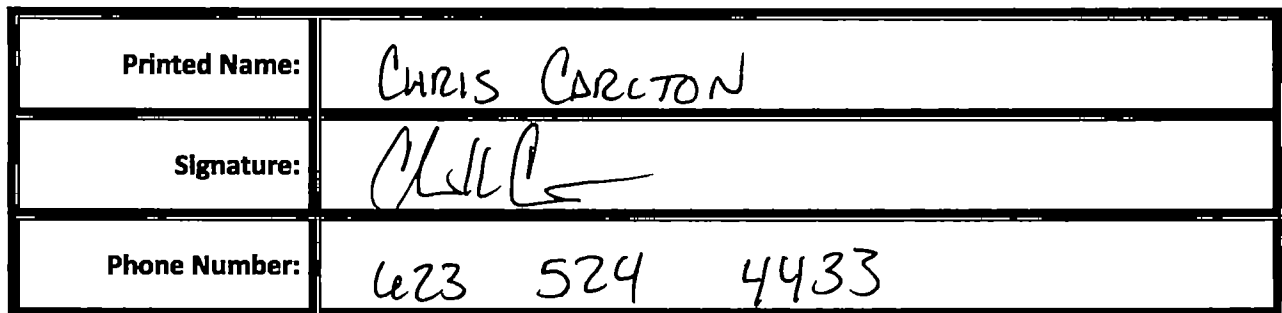 Printed Name: CHRIS CARLTON
Signature:
Phone Number: 623 524 4433